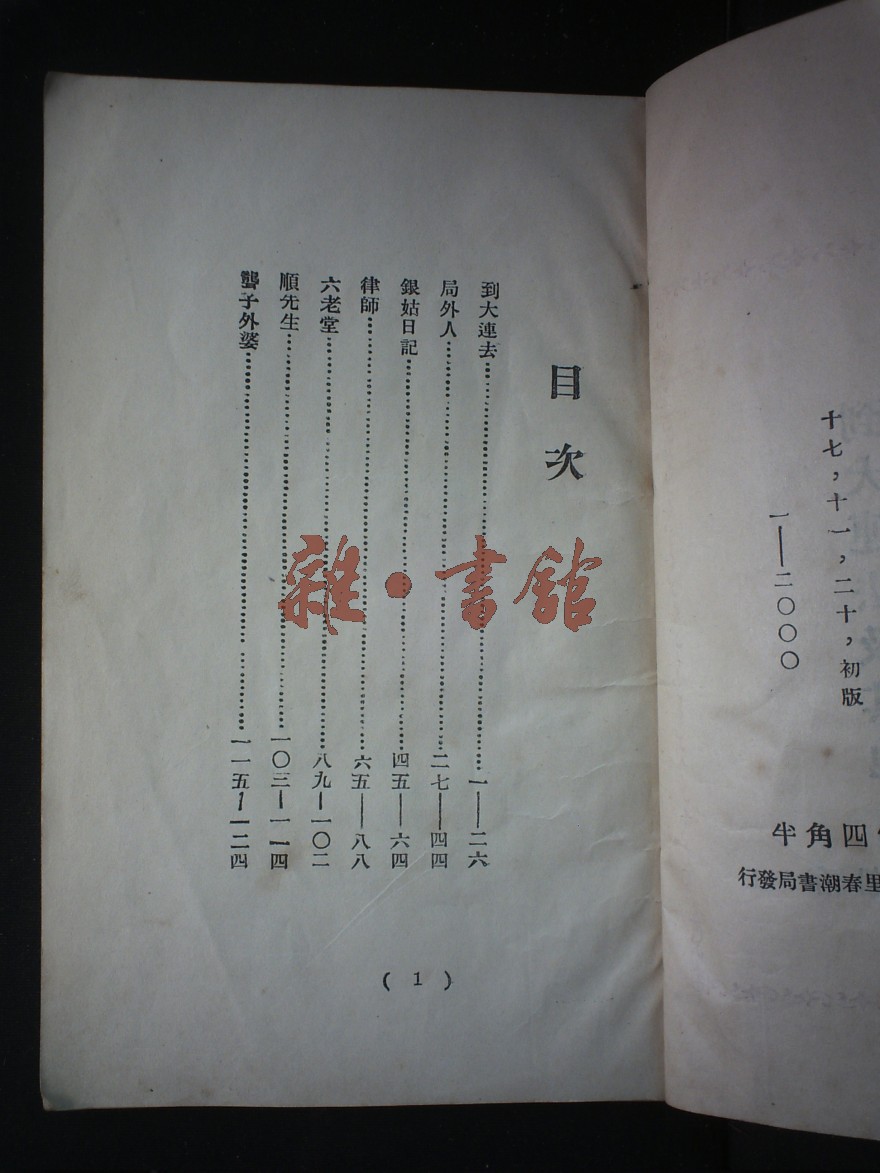 十七，十一，二十，初版
一——二〇〇〇
四角半
里春潮書局發行
目次
到大連去……一——二六
局外人……二七——四四
銀姑日記……四五——六四
律師……六五——八八
六老堂……八九——一〇二
順先生……一〇三——一一四
聾子外婆……一一五——一二四
( 1 )
雜·書館